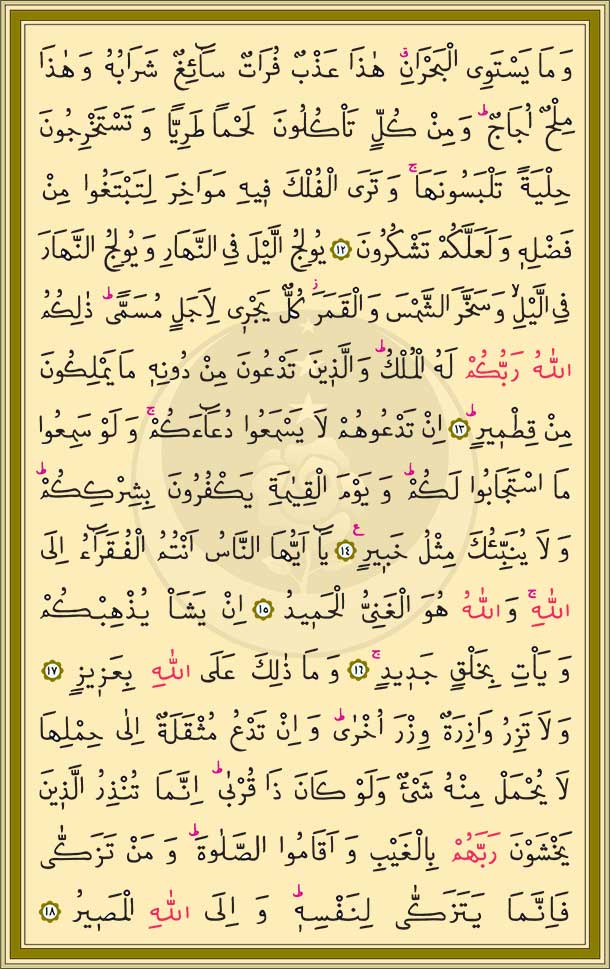 وَمَا يَسْتَوِى الْبَحْرَانِۗ هٰذَا عَذْبٌ فُرَاتٌ سَٓائِغٌ شَرَابُهُ وَهٰذَا
مِلْحٌ اُجَاجٌۜ وَمِنْ كُلٍّ تَأْكُلُونَ لَحْماً طَرِياًّ وَتَسْتَخْرِجُونَ
حِلْيَةً تَلْبَسُونَهَاۚ وَتَرَى الْفُلْكَ ف۪يهِ مَوَاخِرَ لِتَبْتَغُوا مِنْ
فَضْلِه۪ وَلَعَلَّكُمْ تَشْكُرُونَ ﴿١٢﴾ يُولِجُ الَّيْلَ فِى النَّهَارِ وَيُولِجُ النَّهَارَ
فِى الَّيْلِۙ وَسَخَّرَ الشَّمْسَ وَالْقَمَرَۘ كُلٌّ يَجْر۪ى لِاَجَلٍ مُسَمًّىۜ ذٰلِكُمُ
اللّٰهُ رَبُّكُمْ لَهُ الْمُلْكُۜ وَالَّذ۪ينَ تَدْعُونَ مِنْ دُونِه۪ مَا يَمْلِكُونَ
مِنْ قِطْم۪يرٍۜ ﴿١٣﴾ اِنْ تَدْعُوهُمْ لَا يَسْمَعُوا دُعَٓاءَكُمْۚ وَلَوْ سَمِعُوا
مَا اسْتَجَابُوا لَكُمْۜ وَيَوْمَ الْقِيٰمَةِ يَكْفُرُونَ بِشِرْكِكُمْۜ
وَلَا يُنَبِّئُكَ مِثْلُ خَب۪يرٍ۟ ﴿١٤﴾ يَٓا اَيُّهَا النَّاسُ اَنْتُمُ الْفُقَرَٓاءُ اِلَى
اللّٰهِۚ وَاللّٰهُ هُوَ الْغَنِىُّ الْحَم۪يدُ ﴿١٥﴾ اِنْ يَشَأْ يُذْهِبْكُمْ
وَيَأْتِ بِخَلْقٍ جَد۪يدٍۚ ﴿١٦﴾ وَمَا ذٰلِكَ عَلَى اللّٰهِ بِعَز۪يزٍ ﴿١٧﴾
وَلَا تَزِرُ وَازِرَةٌ وِزْرَ اُخْرٰىۜ وَاِنْ تَدْعُ مُثْقَلَةٌ اِلٰى حِمْلِهَا
لَا يُحْمَلْ مِنْهُ شَىْءٌ وَلَوْ كَانَ ذَا قُرْبٰىۜ اِنَّمَا تُنْذِرُ الَّذ۪ينَ
يَخْشَوْنَ رَبَّهُمْ بِالْغَيْبِ وَاَقَامُوا الصَّلٰوةَۜ وَمَنْ تَزَكّٰى
فَاِنَّمَا يَتَزَكّٰى لِنَفْسِه۪ۜ وَاِلَى اللّٰهِ الْمَص۪يرُ ﴿١٨﴾